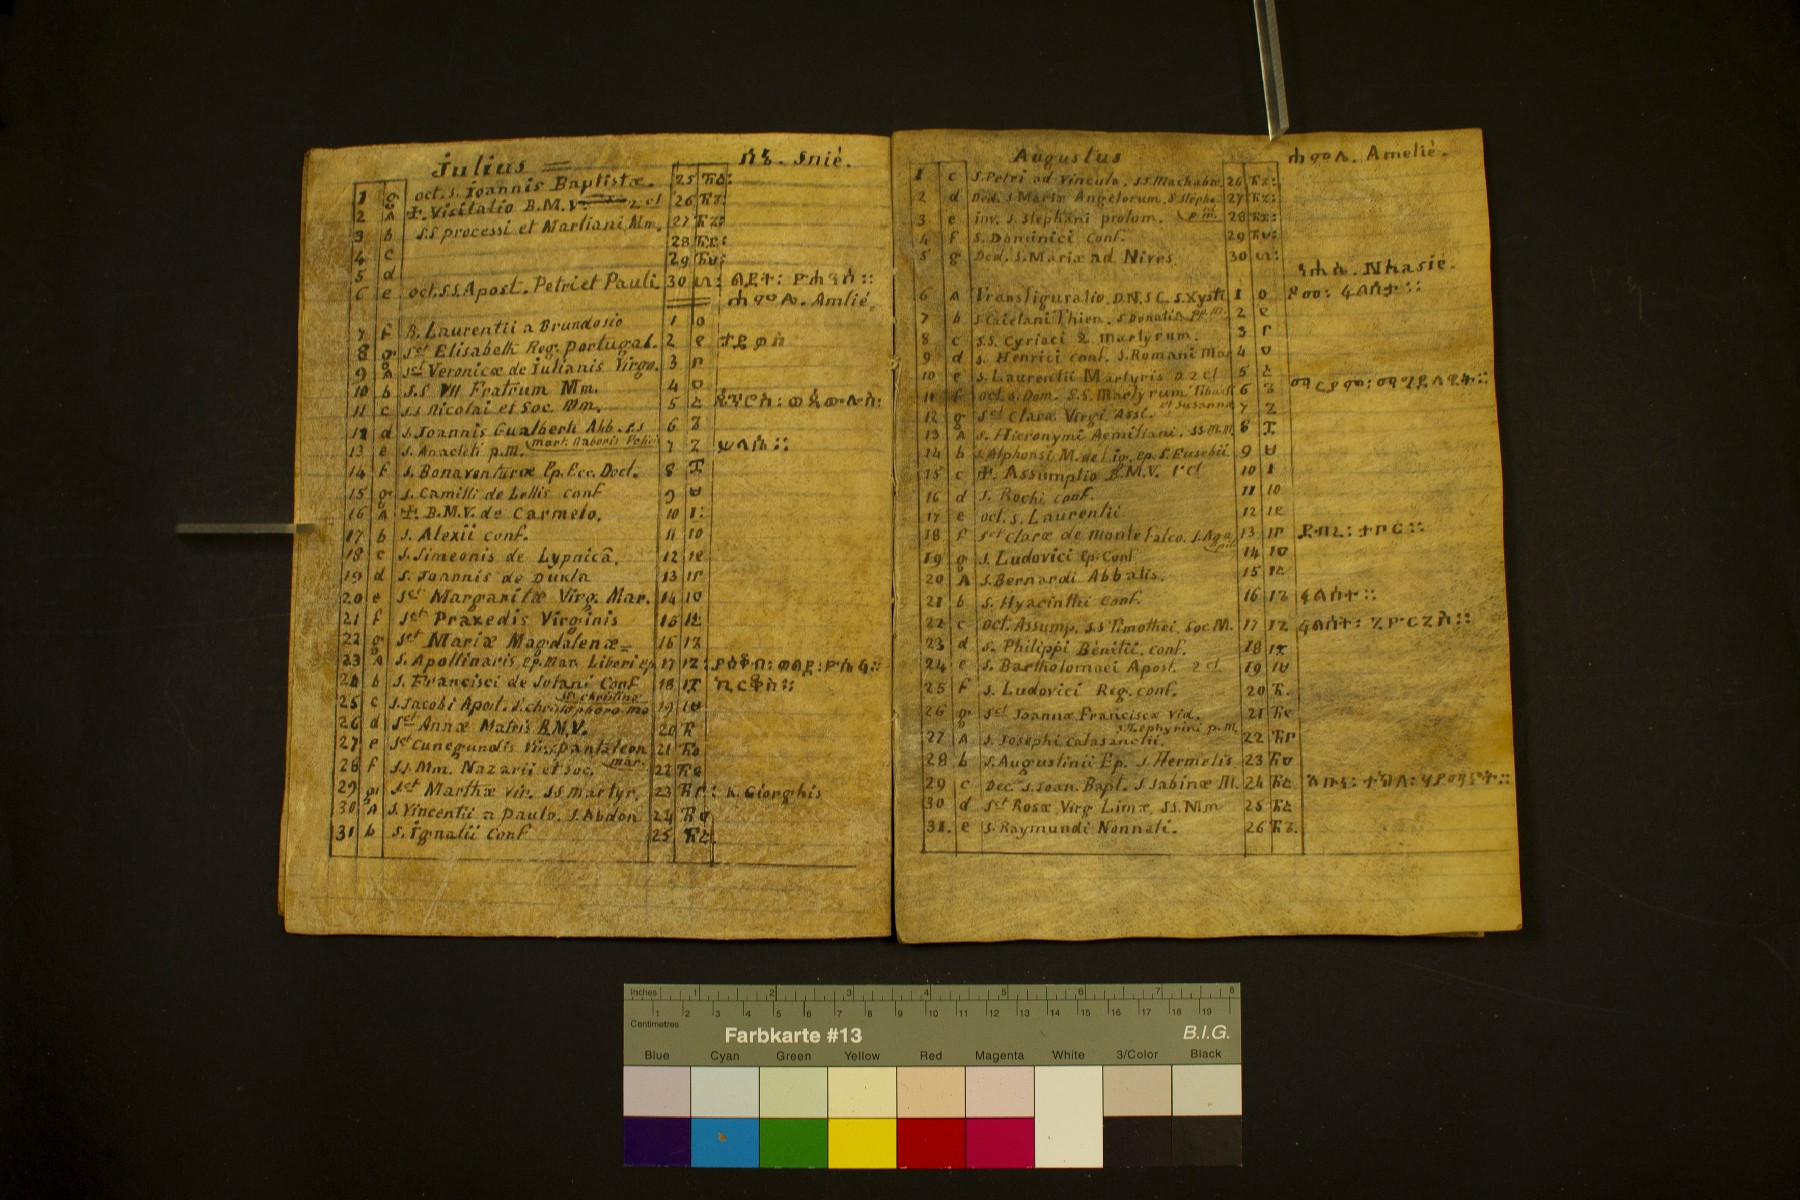 Julius = ሰኔ. Snié.
1 g oct. S. Joannis Baptistæ. 25 ፳፭:
2 A ✠. Visitatio B.M.V. 2 cl 26 ፳፮:
3 b S.S processi et Martiani Mm. 27 ፳፯:
4 c 28 ፳፰:
5 d 29 ፳፱:
6 e oct. S.S. Apost. Petri et Pauli. 30 ፴: ልደተ: ዮሐንስ ።
ሐምሌ. Amlié.
7 f B. Laurentii a Brundosio 1 ፩
8 g Sct Elisabeth Reg. portugal. 2 ፪ ታዴዎስ
9 A Sct Veronicæ de Julianis Virgo. 3 ፫
10 b S.S VII Fratrum Mm. 4 ፬
11 c S.S Nicolai et Soc. Mm. 5 ፭ ጴጥሮስ: ወጳውሎስ:
12 d S. Joannis Gualberti Abb. S.S 6 ፮
mart. Naboris Felici
13 e S. Anacleti p.m. 7 ፯ ሥላሴ ።
14 f S. Bonaventuræ Ep. Ecc. Doct. 8 ፰
15 g S. Camilli de Lellis conf 9 ፱
16 A ✠. B.M.V. de Carmelo. 10 ፲:
17 b S. Alexii conf. 11 ፲፩
18 c S. Simeonis de Lypnicâ. 12 ፲፪
19 d S. Joannis de Dukla 13 ፲፫
20 e Sct Margaritæ Virg. Mar. 14 ፲፬
21 f Sct Praxedis Virginis 15 ፲፭
22 g Sct Mariæ Magdalenæ = 16 ፲፮
23 A S. Apollinaris Ep. Mar. Liberi Ep. 17 ፲፯: ያዕቆብ: ወልደ: ዮሴፍ ።
24 b S. Francisci de Solani Conf 18 ፲፰ ቂርቆስ ።
Sct christinæ
25 c S. Jacobi Apost. S. christophoro ma 19 ፲፱
26 d Sct Annæ Matris B.M.V. 20 ፳
27 e Sct Cunegundis Vir. pantaleon 21 ፳፩
mar.
28 f S.S. Mm. Nazarii et Soc. 22 ፳፪
29 g Sct Marthæ Vir. S.S Martyr. 23 ፳፫: K. Giorghis
30 A S. Vincentii a Paulo. S. Abdon 24 ፳፬
31 b S. Ignatii Conf 25 ፳፭.
Augustus ሐምሌ. Amelié.
1 c S. Petri ad Vincula. S.S. Machabæ. 26 ፳፮:
2 d Ded. S. Mariæ Angelorum. S Stepha 27 ፳፯:
p.m.
3 e inv. S. Stephani protom. 28 ፳፰:
4 f S. Dominici Conf. 29 ፳፱:
5 g Ded. S. Mariæ ad Nives 30 ፴:
ነሐሴ. Nhasié.
6 A Transfiguratio. D.N.J C. S. Xysti 1 ፩ ጾመ: ፍልሰተ ።
7 b S Caietani Thien. S Donati Ep. M. 2 ፪
8 c S.S. Cyriaci & martyrum. 3 ፫
9 d S. Henrici conf. S. Romani Mar 4 ፬
10 e S. Laurentii Martyris D. 2 cl 5 ፭
11 f oct. S. Dom. S.S. Martyrum Tiburt 6 ፮ ማርያም: ማግደላዊት ።
et Susannæ
12 g Sct Claræ Virgi. Assi. 7 ፯
13 A S. Hieronymi Aemiliani. SS m.m. 8 ፰
14 b S. Alphonsi M. de Lig. Ep. S. Eusebii. 9 ፱
15 c ✠. Assumptio B.M.V. 1' cl 10 ፲
16 d S. Rochi conf. 11 ፲፩
17 e oct. S. Laurentii 12 ፲፪
18 f Sct Claræ de monte Falco. S. Aga 13 ፲፫ ደብረ: ታቦር ።
pit
19 g S. Ludovici Ep. Conf 14 ፲፬
20 A S. Bernardi Abbatis. 15 ፲፭
21 b S. Hyacinthi conf. 16 ፲፮ ፍልሰተ ።
22 c oct. Assump. S.S Timothei. Soc M. 17 ፲፯ ፍልሰተ: ጊዮርጊስ ።
23 d S. Philippi Benitii. conf. 18 ፲፰
24 e S. Bartholomaei Apost. 2 cl. 19 ፲፱
25 f S. Ludovici Reg. conf. 20 ፳.
26 g Sct Joannæ Franciscæ Vid. 21 ፳፩
S. Zephyrini p.m.
27 A S. Josephi Calasanctii. 22 ፳፪
28 b S. Augustinii Ep. S. Hermetis 23 ፳፫
29 c Dec. S. Joan. Bapt. S Sabinæ M. 24 ፳፬ አቡነ: ተክለ: ሃይማኖት ።
30 d Sct Rosæ Virg Limæ. SS. Mm 25 ፳፭
31. e S. Raymundi Nonnati. 26 ፳፮.
Inches 1 2 3 4 5 6 7 8
Centimetres 1 2 3 4 5 6 7 8 9 10 11 12 13 14 15 16 17 18 19
Farbkarte #13 B.I.G.
Blue Cyan Green Yellow Red Magenta White 3/Color Black